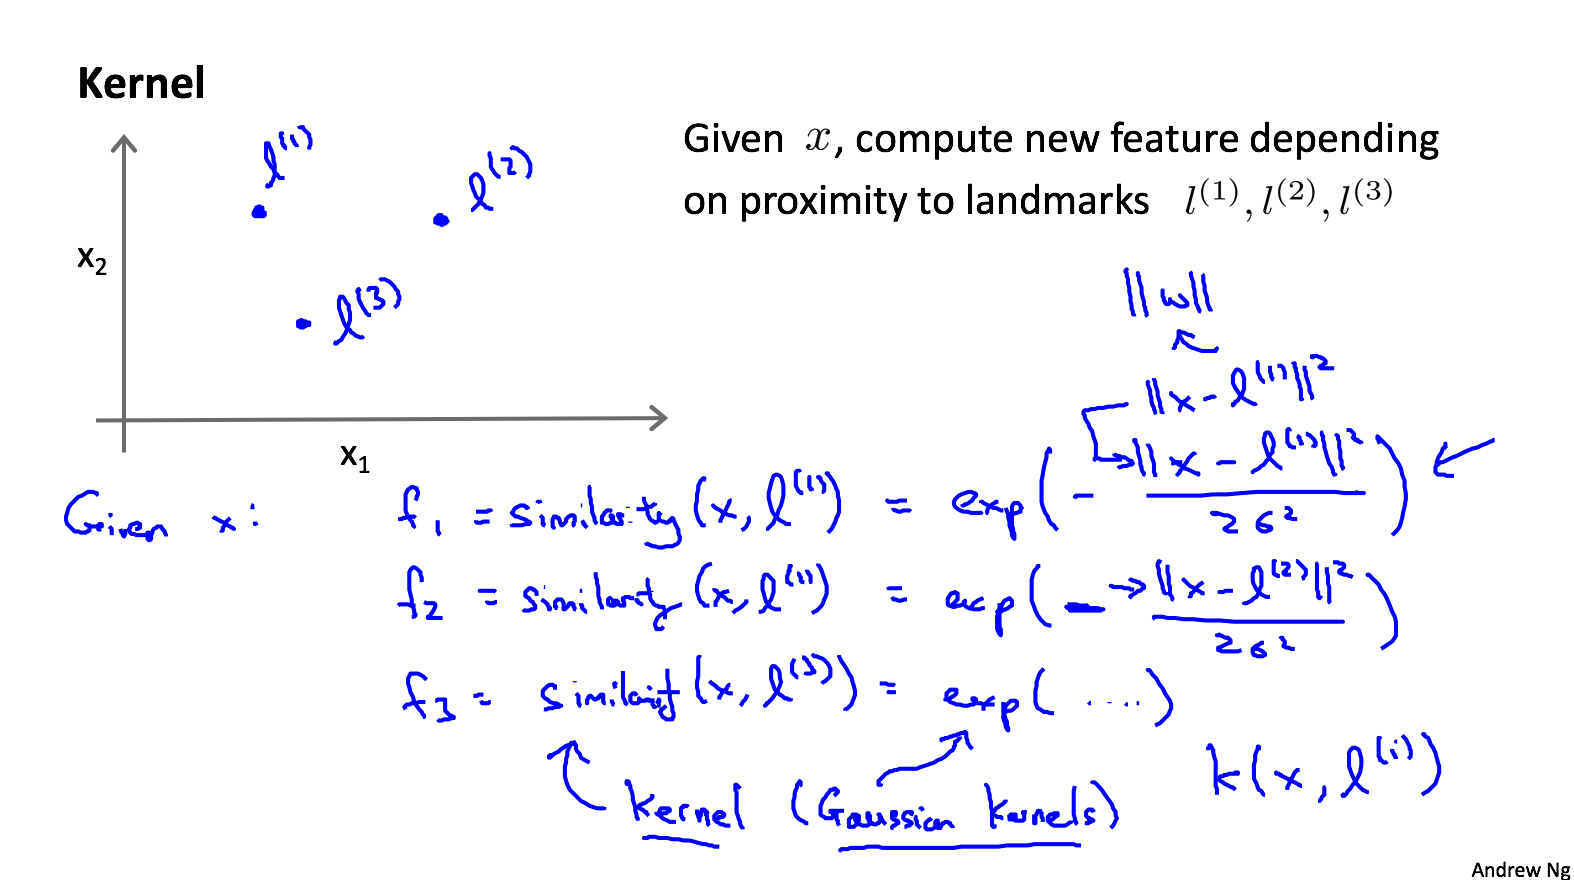 Kernel
l⁽¹⁾
l⁽²⁾
l⁽³⁾
x₂
x₁
Given x, compute new feature depending
on proximity to landmarks l⁽¹⁾, l⁽²⁾, l⁽³⁾
||w||
||x - l⁽¹⁾||²
Given x: f₁ = similarity(x, l⁽¹⁾) = exp(- ||x - l⁽¹⁾||² / 2σ²)
f₂ = similarity(x, l⁽¹⁾) = exp(- ||x - l⁽²⁾||² / 2σ²)
f₃ = similarity(x, l⁽³⁾) = exp(.....)
kernel (Gaussian kernels)
k(x, l⁽ⁱ⁾)
Andrew Ng